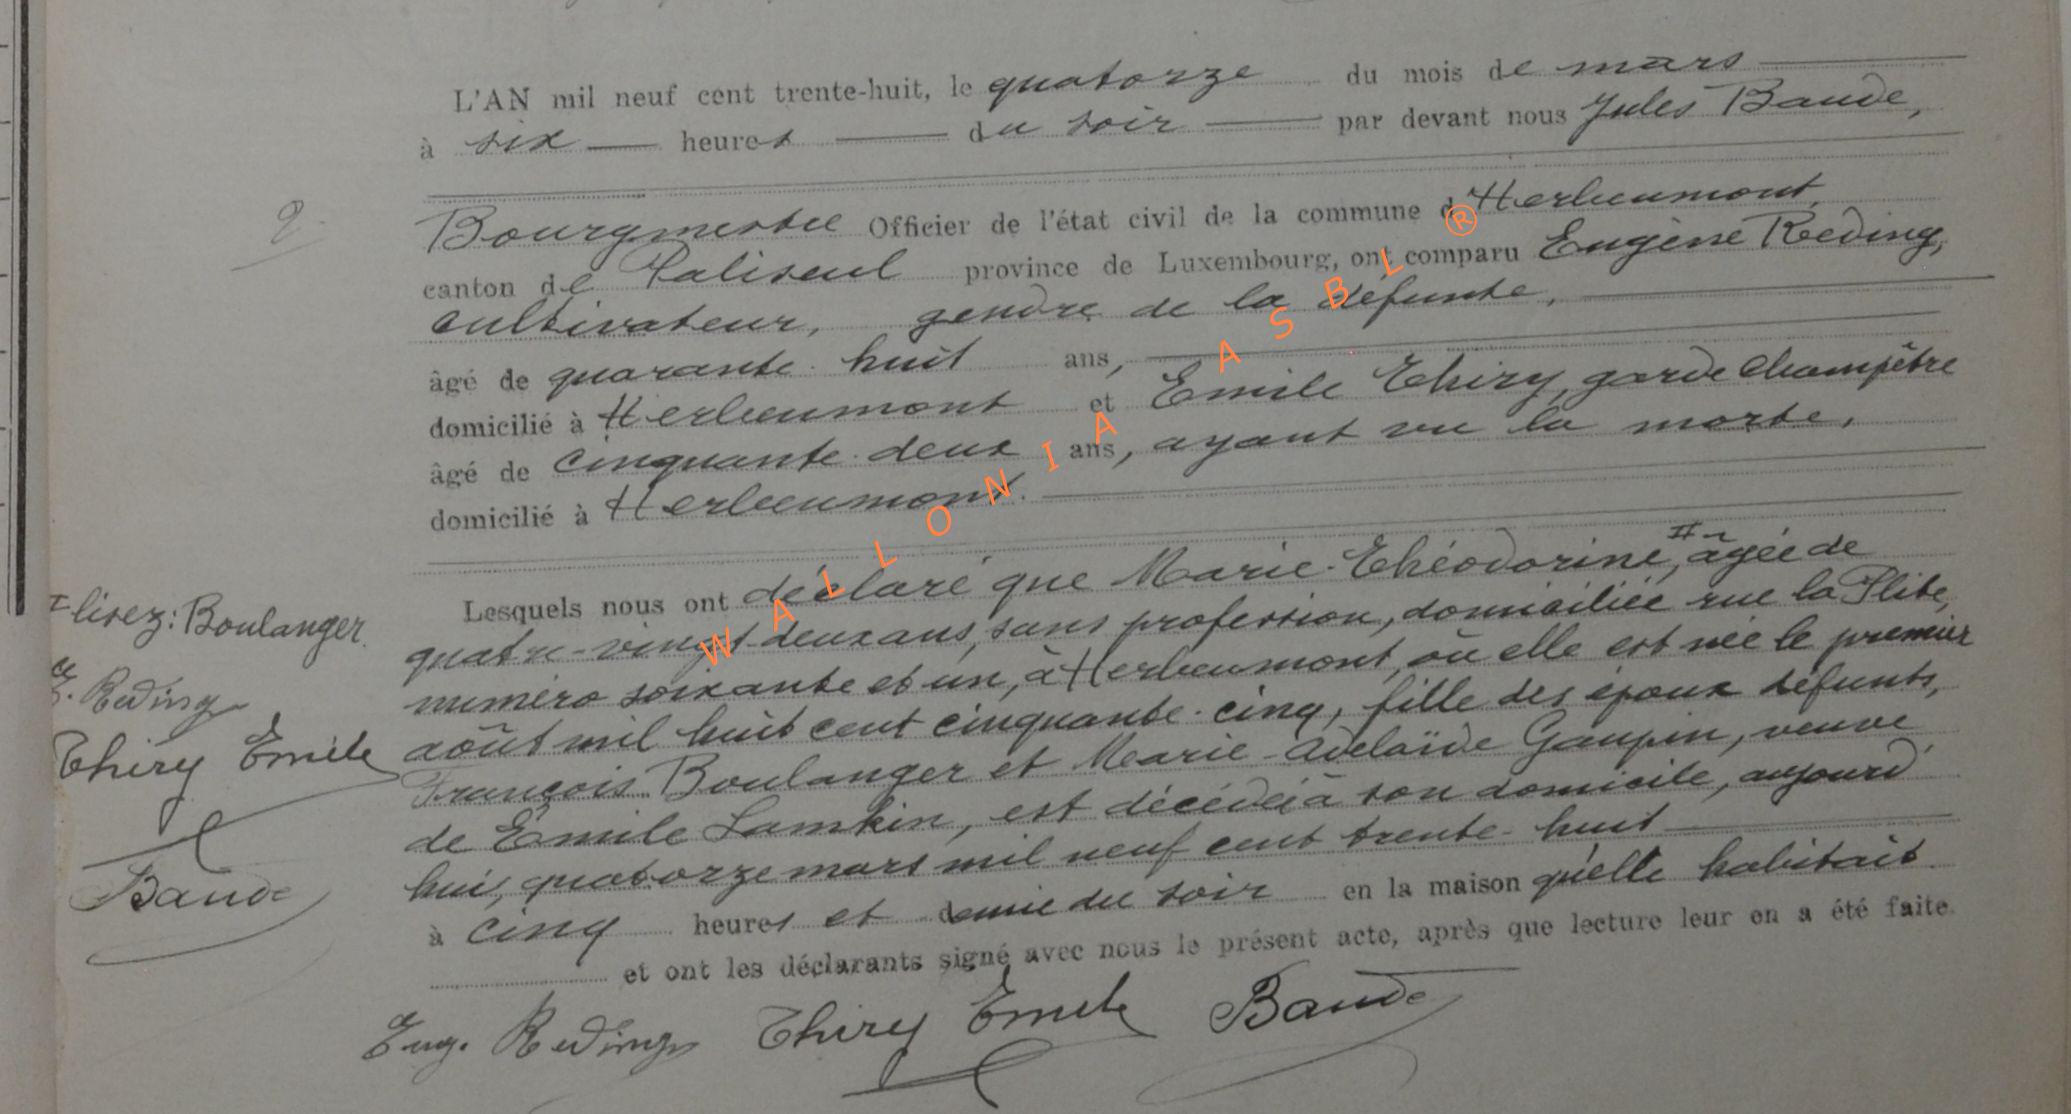 L'AN mil neuf cent trente-huit, le quatorze du mois de mars
à six heures du soir par devant nous Jules Baude,
2.
Bourgmestre Officier de l'état civil de la commune d'Herbeumont,
canton de Paliseul province de Luxembourg, ont comparu Eugène Reding,
cultivateur, gendre de la défunte,
âgé de quarante-huit ans,
domicilié à Herbeumont et Emile Thiry, garde champêtre
âgé de cinquante-deux ans, ayant vu la morte,
domicilié à Herbeumont.
Lesquels nous ont déclaré que Marie-Théodorine, âgée de
quatre-vingt-deux ans, sans profession, domiciliée rue la Plite,
numéro soixante et un, à Herbeumont, où elle est née le premier
août mil huit cent cinquante-cinq, fille des époux défunts,
François Boulanger et Marie-Adelaïde Gaupin, veuve
de Emile Lamkin, est décédée à son domicile, aujourd'
hui, quatorze mars mil neuf cent trente-huit
à cinq heures et demie du soir en la maison qu'elle habitait
et ont les déclarants signé avec nous le présent acte, après que lecture leur en a été faite.
Eug. Reding Thiry Emile Baude
lisez: Boulanger.
E. Reding
Thiry Emile
Baude
WALLONIA ASBL ®